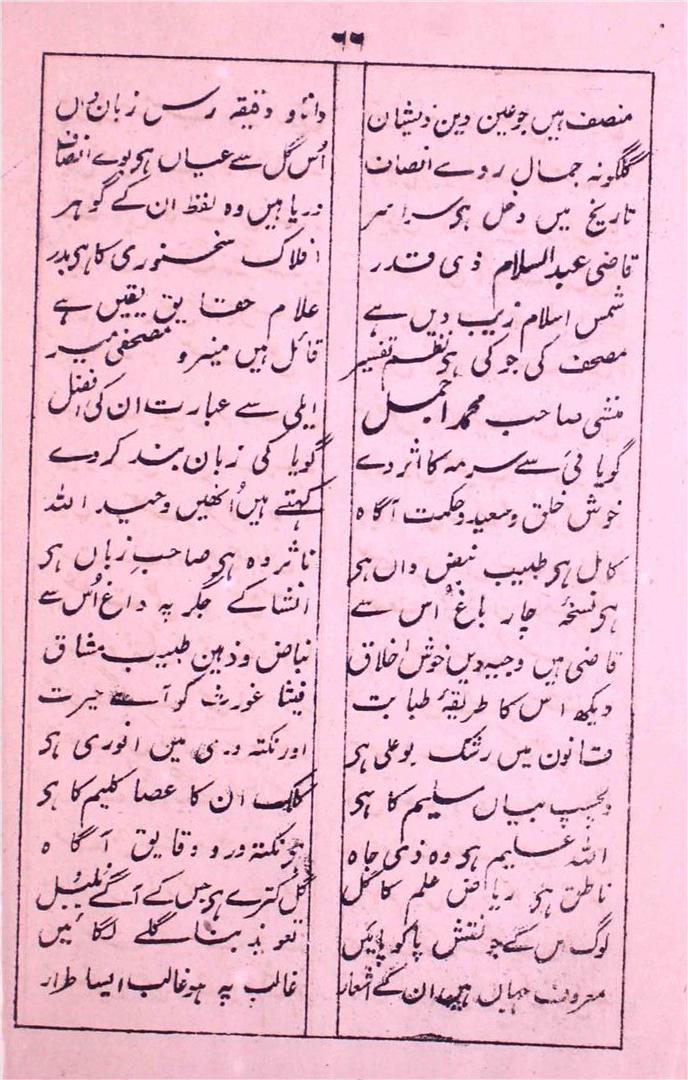 ۶۶
منصف ہیں جو عین دین ذیشان
دانا و دقیقہ رس زبان داں
گلگونہ جمال روے انصاف
اُس گل سے عیاں ہی بوے انصاف
تاریخ میں دخل ہی سراسر
دریا ہیں وہ لفظ ان کے گوہر
قاضی عبدالسلام ذی قدر
افلاک سخنوری کا ہی بدر
شمس اسلام زیب دیں ہے
علام حقایق یقیں ہے
مصحف کی جو کی ہی نظم تفسیر
قائل ہیں منیر و مصحفی میر
منشی صاحب محمد اجمل
ایلی سے عبارت ان کی افضل
گویائی سے سرمہ کا اثر دے
گویا کی زبان بند کر دے
خوش خلق و سعید و حکمت آگاہ
کہتے ہیں اُنھیں وحید اللہ
کامل ہی طبیب نبض داں ہی
ناثر وہ ہی صاحبِ زباں ہی
ہی نسخۂ چار باغ اُس سے
انشا کے جگر پہ داغ اُس سے
قاضی ہیں وجیہ دیں خوش اخلاق
نباض و ذہین طبیب مشاق
دیکھ اس کا طریقۂ طبابت
فیثا غورث کو آے حیرت
قانون میں رشک بو علی ہی
اور نکتہ وری میں انوری ہی
دلچسپ بیاں سلیم کا ہی
کلک ان کا عصا کلیم کا ہی
اللہ علیم ہی وہ ذی جاہ
نکتہ ور و دقایق آگاہ
ناطق ہی ریاض علم کا گل
گل کترے ہی جس کے آگے بلبل
لوگ اس کے جو نقش پا کو پائیں
تعویذ بنا گلے لگائیں
معروف جہاں ہیں ان کے اشعار
غالب پہ ہو غالب ایسا طرار